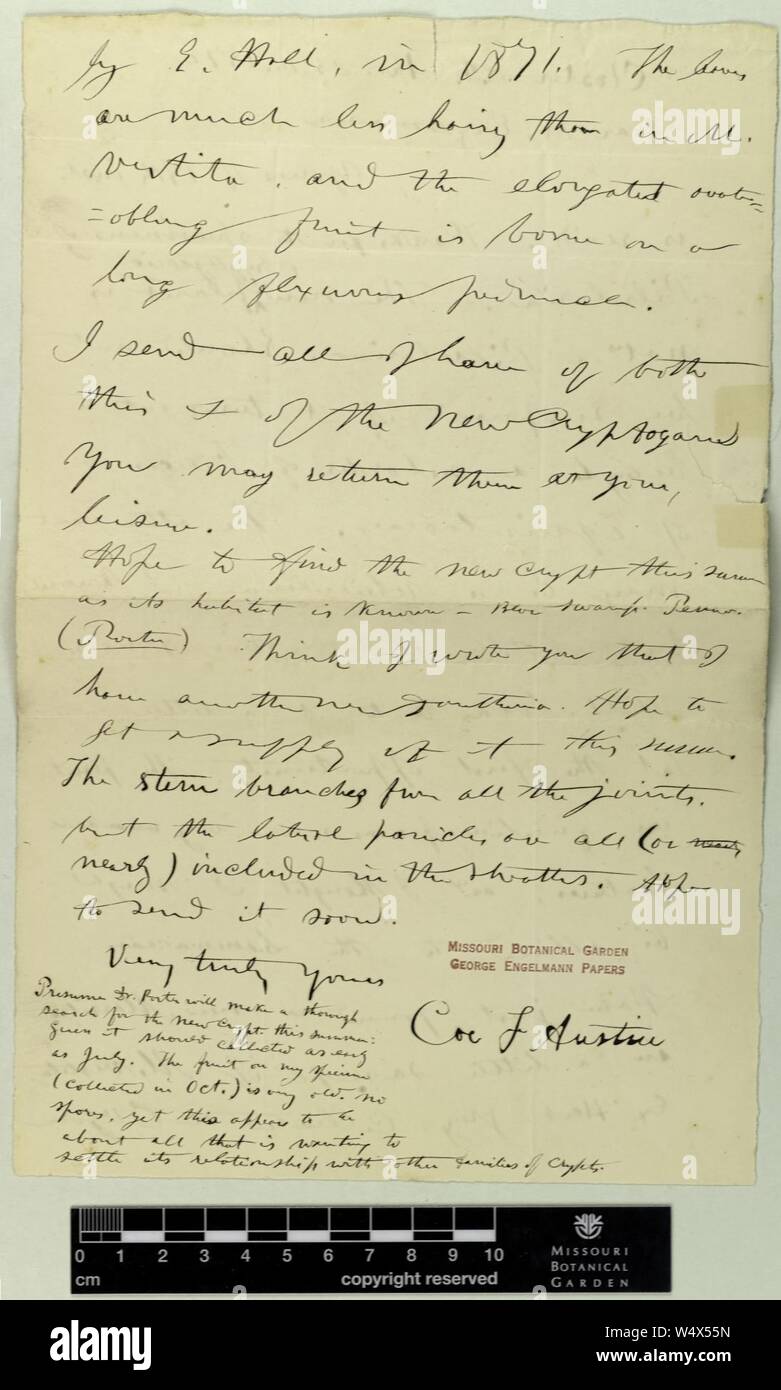 by E. Hall, in 1871. The leaves
are much less hairy than in M.
vestita, and the elongated ovate=
=oblong fruit is borne on a
long flexuous peduncle.
I send all I have of both
this & of the new Cryptogam
You may return them at your
leisure.
Hope to find the new Crypt this
as its habitat is known – Bear Swamp. Penna.
(Porter) Think I wrote you that I
have another new Hope to
get a supply of it this
The stem branches from all the joints,
but the lateral panicles are all (or
nearly) included in the sheaths. Hope
to send it soon.
Very truly Yours
Coe F Austin
Presume Dr. Porter will make a thorough
search for the new Crypt. this summer:
guess it should collected as early
as July. The fruit on my specimen
(collected in Oct.) is very old. no
spores, yet this appears to be
about all that is wanting to
settle its relationship with other families of Crypts.
MISSOURI BOTANICAL GARDEN
GEORGE ENGELMANN PAPERS
0 1 2 3 4 5 6 7 8 9 10
cm
copyright reserved
MISSOURI
BOTANICAL
GARDEN
alamy
Image ID: W4X55N
www.alamy.com